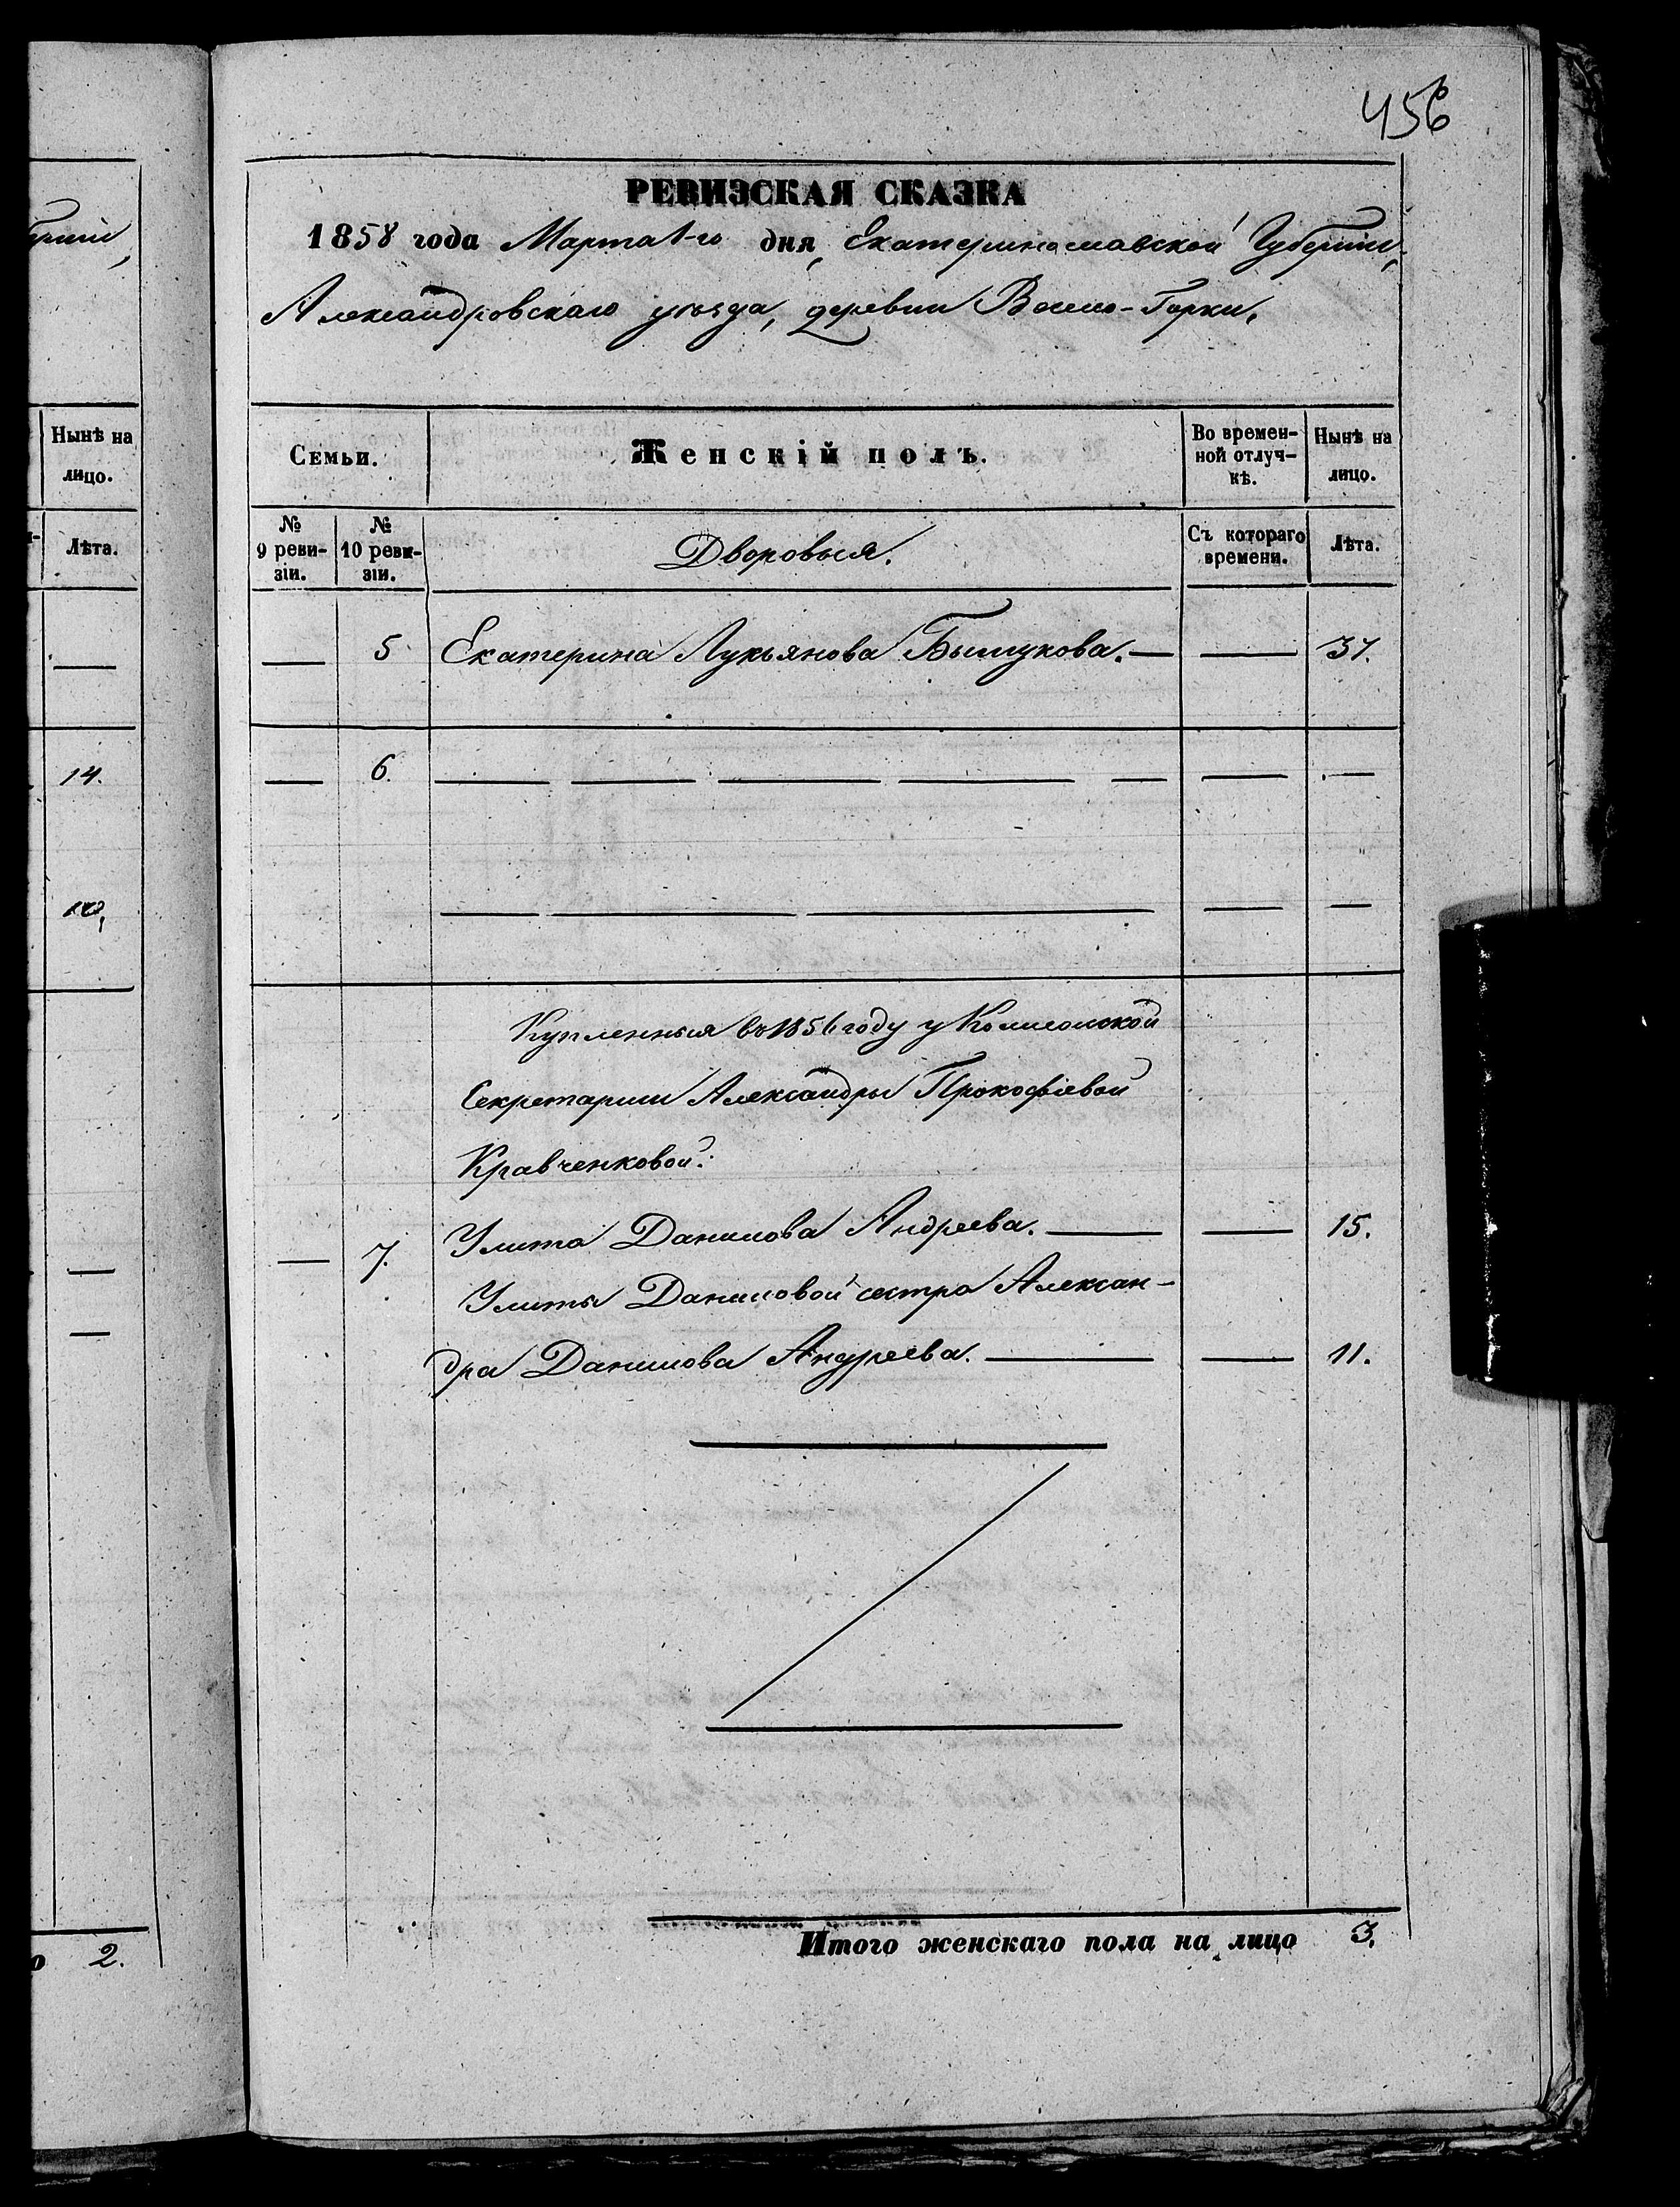 456
РЕВИЗСКАЯ СКАЗКА
1858 года Марта 1-го дня, Екатеринославской Губерніи,
Александровскаго уѣзда, деревни Горки.
Нынѣ на лицо.
Лѣта.
14.
2.
Семьи. Женскій полъ. Во временной отлучкѣ. Нынѣ на лицо.
№ 9 ревизіи. № 10 ревизіи. Дворовыя. Съ котораго времени. Лѣта.
— 5 Екатерина Лукьянова — — 37.
— 6. — — — — — — —
— — — — —
Купленныя въ 1856 году у
Секретарши Александры Прокофіевой
Кравченковой:
— 7. Улита Данилова Андреева. — — 15.
Улиты Даниловой сестра Алексан-
дра Данилова Андреева. — — 11.
Итого женскаго пола на лицо 3.